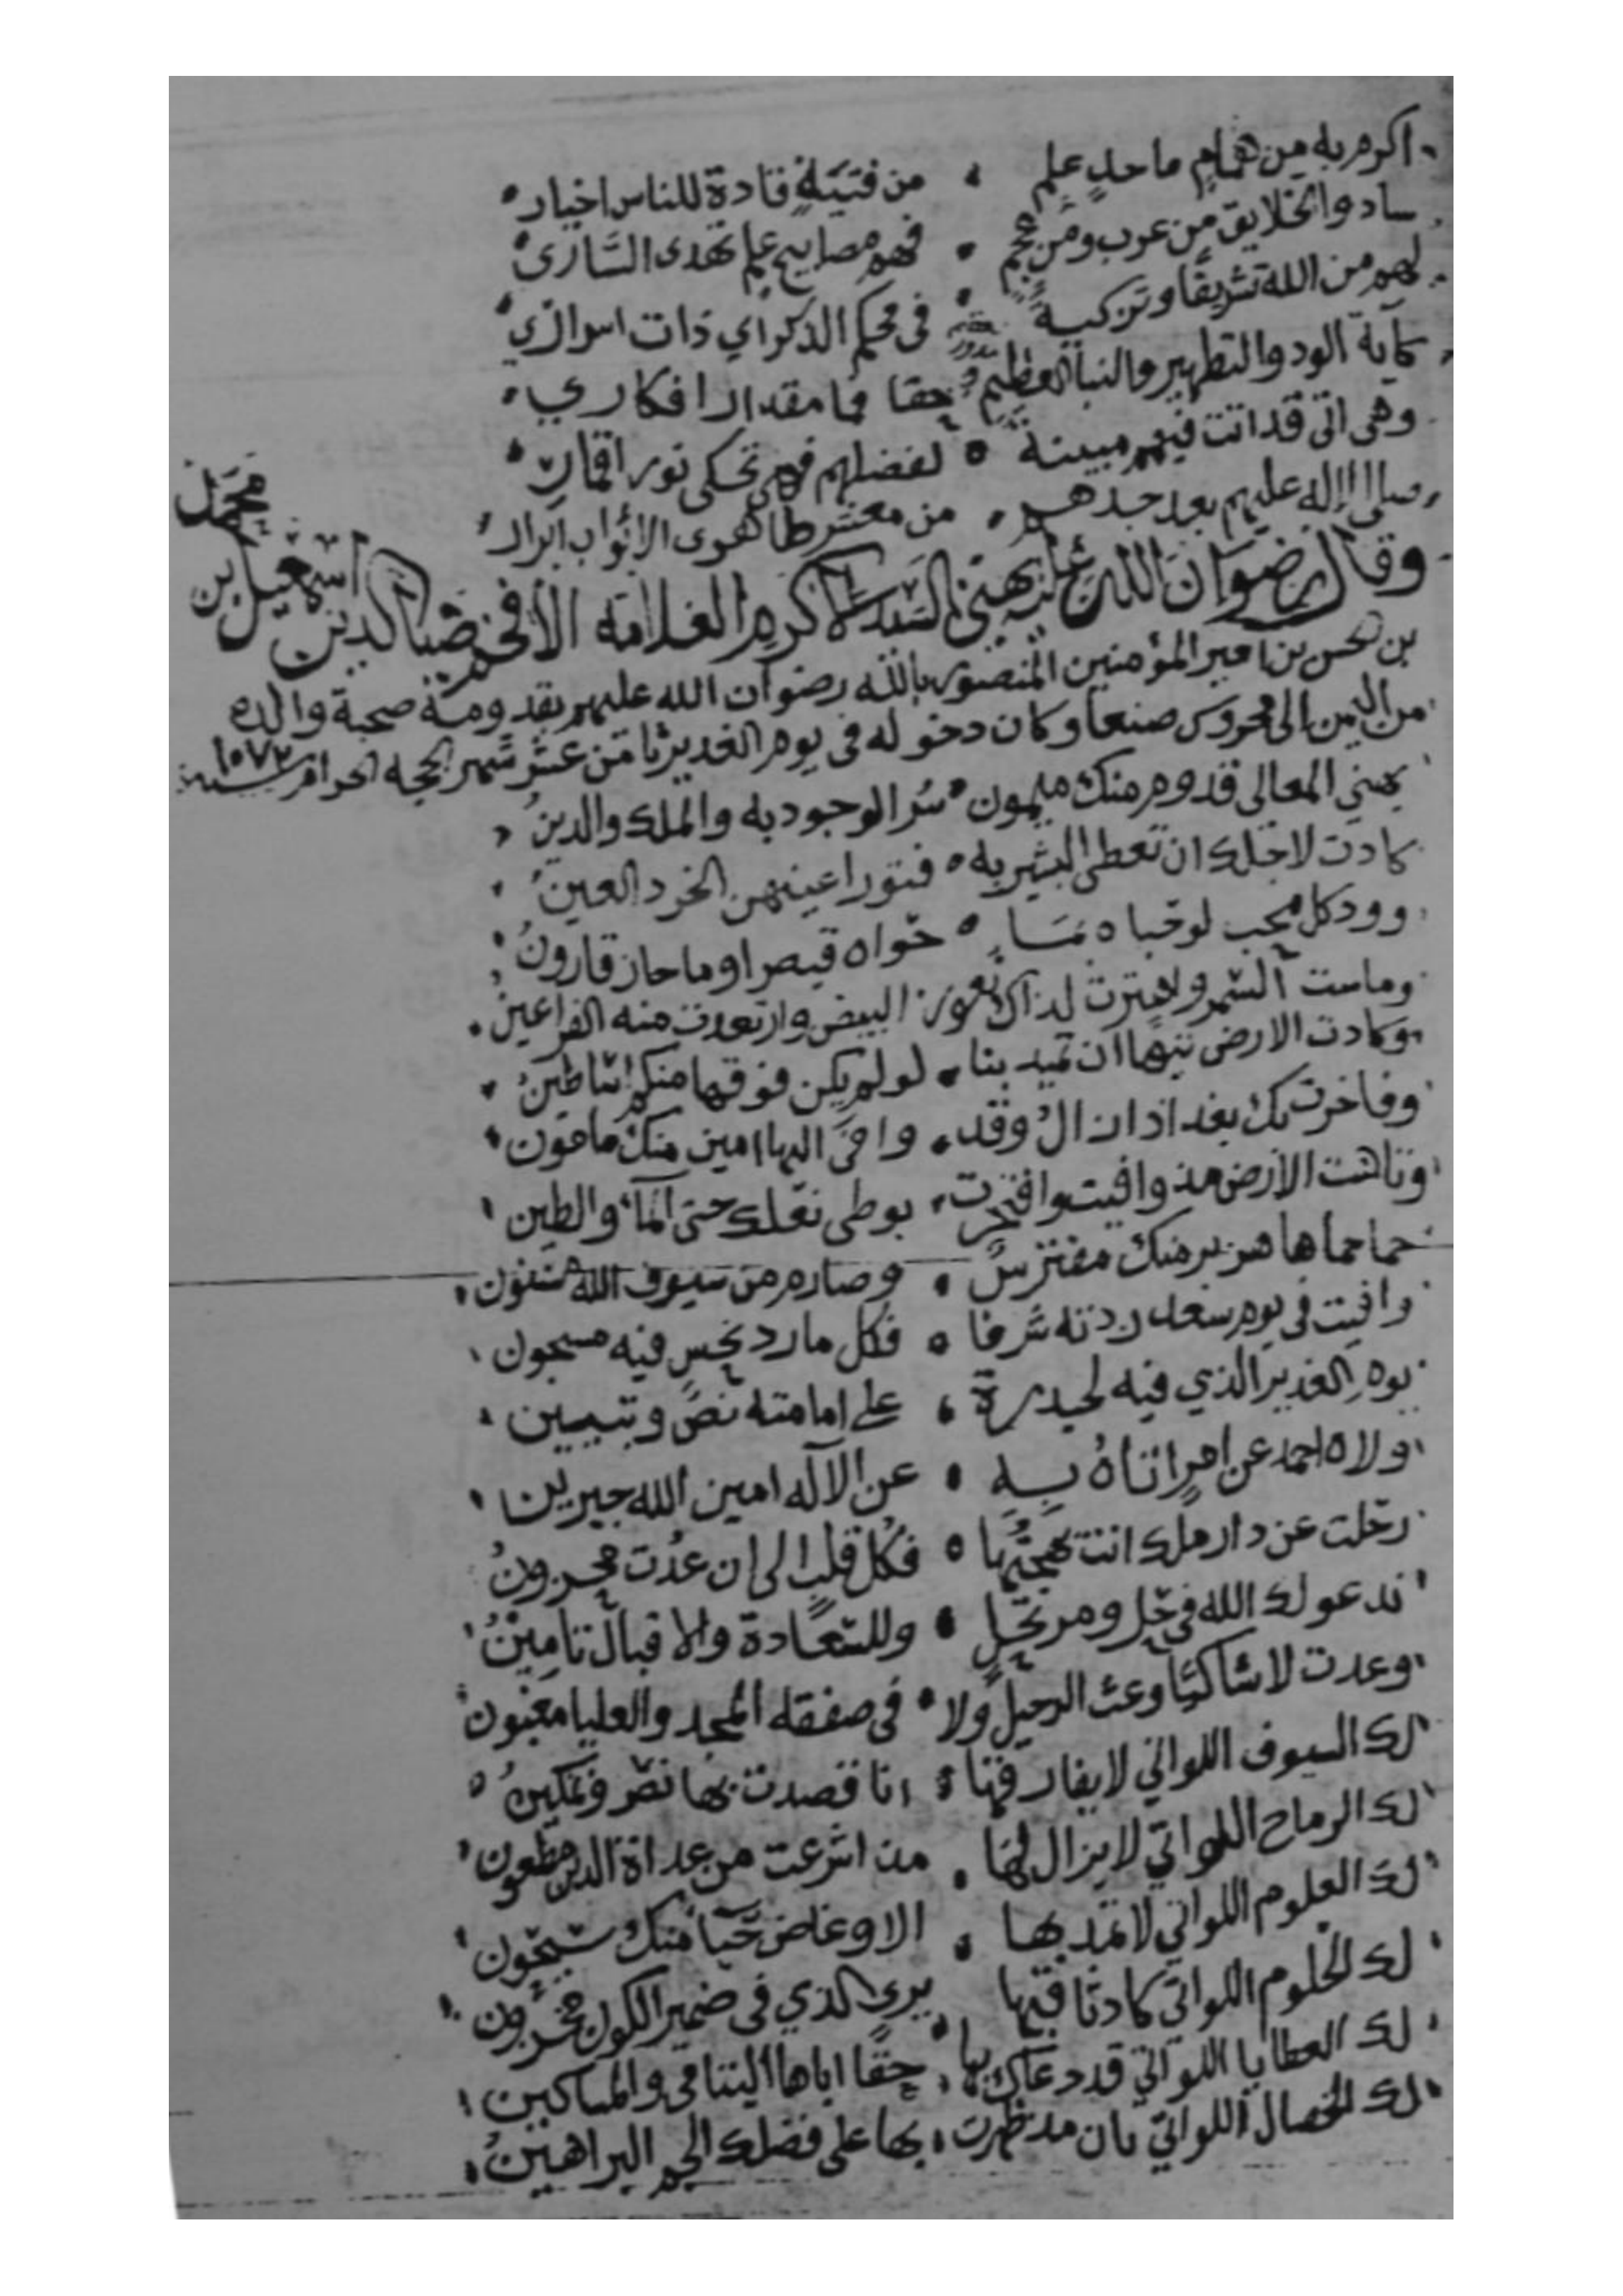 اكرم به من همام ماجد علم من فتية قادة للناس اخيار
سادوا الخلايق من عرب ومن عجم فهم مصابيح علم تهدى السارى
لهم من الله تشريفا وتزكية فى محكم الذكر اي ذات اسرار
كآية الود والتطهير والنبا العظيم حقا فما مقدار افكاري
وهى اتى قد اتت فيهم مبينة لفضلهم فهي تحكى نور اقمار
صلى الاله عليهم بعد جدهم من معشر طاهرى الاثواب ابرار
وقال رضوان الله عليه يهنى السيد الاكرم العلامة الافخم ضيا الدين اسمعيل بن محمد
بن الحسن بن امير المؤمنين المنصور بالله رضوان الله عليهم بقدومه صحبة والده
من اليمن الى محروس صنعا وكان دخوله فى يوم الغدير ثامن عشر شهر الحجه الحرام سنه ١٠٧٢
يهني المعالى قدوم منك ميمون سر الوجود به والملك والدين
كادت لاجلك ان تعطى البشير به فتور اعينهن الخرد العين
وود كل محب لو حباه بما حواه قيصر او ما حاز قارون
وماست السمر واهتزت لذاك البيض وارتعدت منه الفراعين
وكادت الارض تيها ان تميد بنا لو لم يكن فوقها منكم اساطين
وفاخرت بك بغداد ازال وقد وافى اليها امين منك مامون
وتاهت الارض مذ وافيت وافتخرت بوطى نعلك حتى الماء والطين
حما حماها هزبر منك مفترس وصارم من سيوف الله مسنون
وافيت فى يوم سعد زدته شرفا فكل مارد نحس فيه مسجون
يوم الغدير الذي فيه لحيدرة على امامته نص وتبيين
ولاه احمد عن امر اتاه به عن الاله امين الله جبرينا
رحلت عن دار ملك انت بهجتها فكل قلب الى ان عدت محزون
ندعو لك الله فى حل ومرتحل وللسعادة والاقبال تامين
وعدت لا شاكيا وعث الرحيل ولا فى صفقة المجد والعليا مغبون
لك السيوف اللواتي لا يفارقها انا قصدت بها نصر وتمكين
لك الرماح اللواتي لا يزال لها مذ اشرعت من عداة الدين مطعون
لك العلوم اللواتي لا تمد بها الا وغاض حيا منك سيحون
لك الحلوم اللواتي كاد ثاقبها يرى الذي فى ضمير الكون مخزون
لك العطايا اللواتي قد دعاك بها حقا اباها اليتامى والمساكين
لك الخصال اللواتي بان مذ ظهرت بها على فضلك الجم البراهين